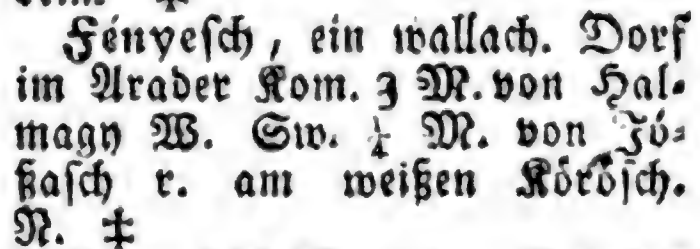 Fényesch, ein wallach. Dorf
im Arader Kom. 3 M. von Hal-
magy W. Sw. ¼ M. von Jó-
ßasch r. am weißen Körösch.
N. ‡